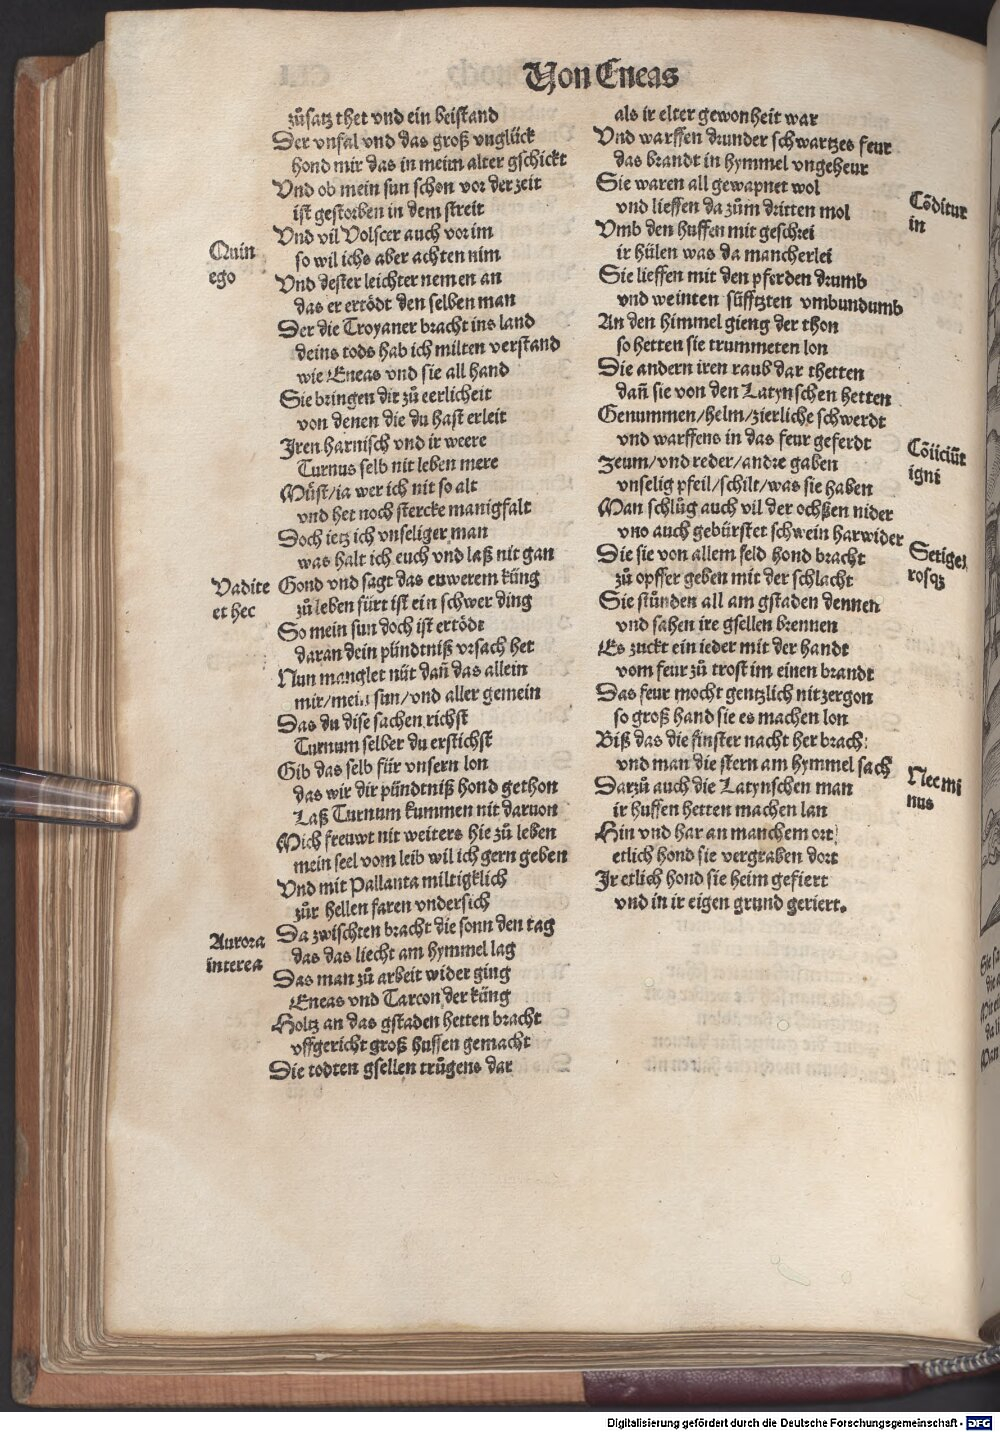 Von Eneas
zůsatz thet vnd ein beistand
Der vnfal vnd das groß vnglück
hond mir das in meim alter gschickt
Vnd ob mein sun schon vor der zeit
ist gestorben in dem streit
Vnd vil Volscer auch vor im
Quin
ego
so wil ichs aber achten nim
Vnd dester leichter nemen an
das er ertödt den selben man
Der die Troyaner bracht ins land
deins tods hab ich milten verstand
wie Eneas vnd sie all hand
Sie bringen dir zů eerlicheit
von denen die du hast erleit
Iren harnisch vnd ir weere
Turnus selb nit leben mere
Müst/ia wer ich nit so alt
vnd het noch stercke manigfalt
Doch ietz ich vnseliger man
was halt ich euch vnd laß nit gan
Vadite
et hec
Gond vnd sagt das euwerem küng
zů leben fürt ist ein schwer ding
So mein sun doch ist ertödt
daran dein pündtniß vrsach het
Nun manglet nüt dañ das allein
mir/mein sun/vnd aller gemein
Das du dise sachen richst
Turnum selber du erstichst
Gib das selb für vnsern lon
das wir dir pündtniß hond gethon
Laß Turnum kummen nit daruon
Mich freuwt nit weiters hie zů leben
mein seel vom leib wil ich gern geben
Vnd mit Pallanta miltigklich
zůr hellen faren vndersich
Aurora
interea
Da zwischten bracht die sonn den tag
das das liecht am hymmel lag
Das man zů arbeit wider ging
Eneas vnd Tarcon der küng
Holtz an das gstaden hetten bracht
vffgericht groß huffen gemacht
Die todten gsellen trůgens dar
als ir elter gewonheit war
Vnd warffen drunder schwartzes feur
das brandt in hymmel vngeheur
Sie waren all gewapnet wol
Cōditur
in
vnd lieffen da zům dritten mol
Vmb den huffen mit geschrei
ir hülen was da mancherlei
Sie lieffen mit den pferden drumb
vnd weinten süfftzten vmbundumb
An den himmel gieng der thon
so hetten sie trummeten lon
Die andern iren raub dar thetten
dañ sie von den Latynschen hetten
Genummen/helm/zierliche schwerdt
Cōiiciūt
igni
vnd warffens in das feur geferdt
Zeum/vnd reder/andre gaben
vnselig pfeil/schilt/was sie haben
Man schlůg auch vil der ochßen nider
vno auch gebürstet schwein harwider
Setiges
rosqz
Die sie von allem feld hond bracht
zů opffer geben mit der schlacht
Sie stůnden all am gstaden dennen
vnd sahen ire gsellen brennen
Es zuckt ein ieder mit der handt
vom feur zů trost im einen brandt
Das feur mocht gentzlich nit zergon
so groß hand sie es machen lon
Biß das die finster nacht her brach:
vnd man die stern am hymmel sach
Nec mi
nus
Darzů auch die Latynschen man
ir huffen hetten machen lan
Hin vnd har an manchem ort:
etlich hond sie vergraben dort
Ir etlich hond sie heim gefiert
vnd in ir eigen grund geriert.
Digitalisierung gefördert durch die Deutsche Forschungsgemeinschaft - DFG